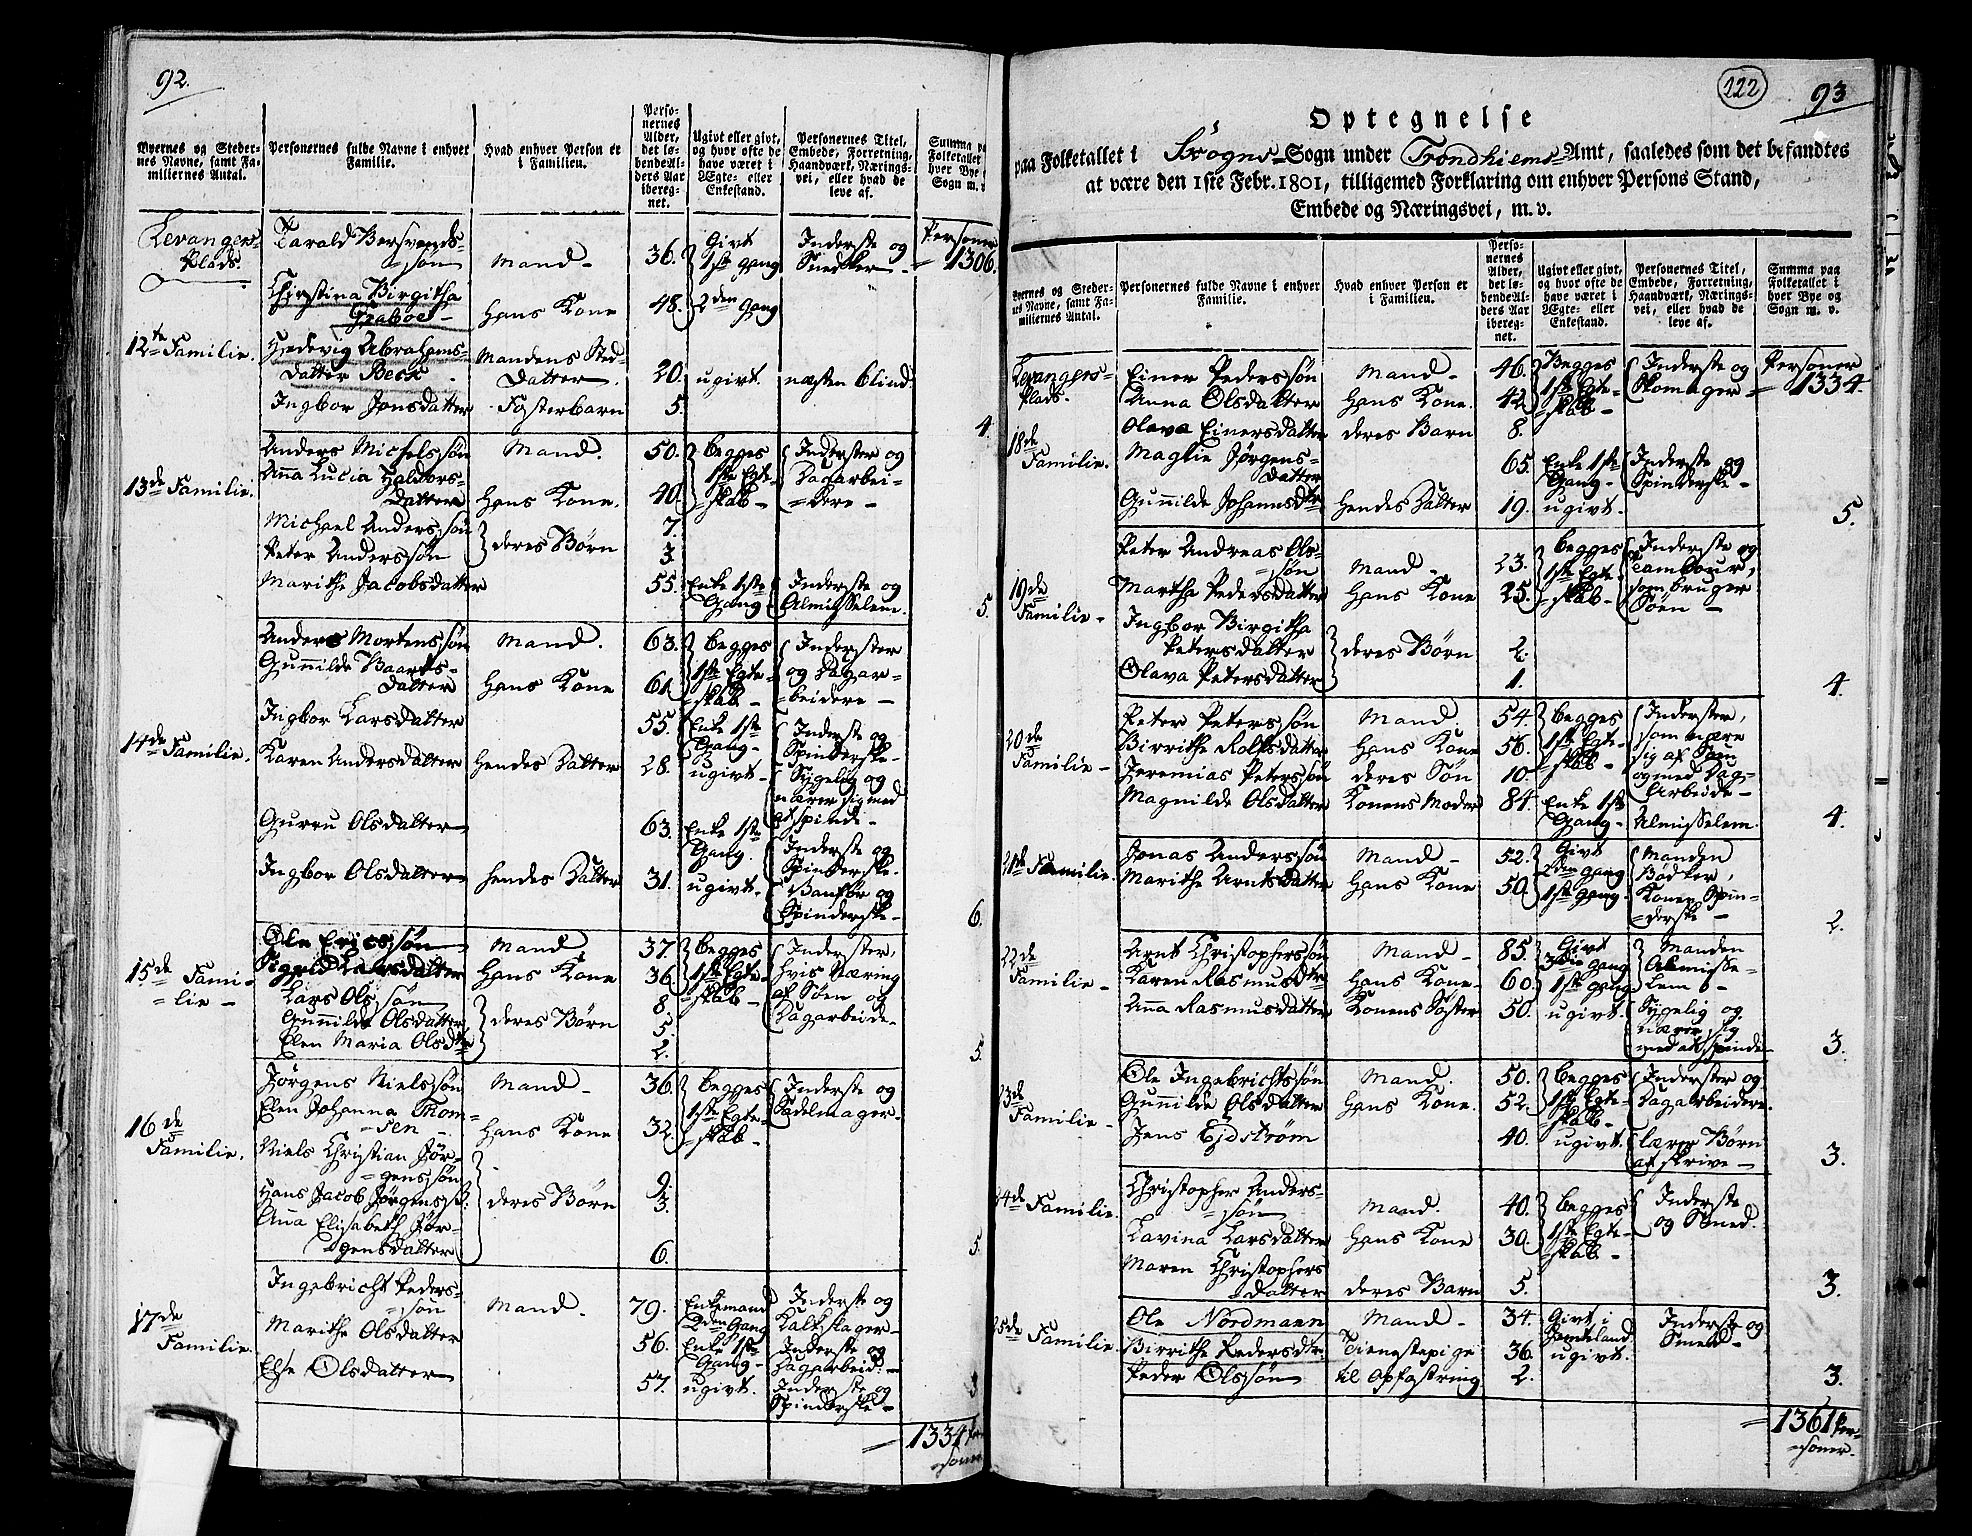 92.
Byernes og Steder-
nes Navne, samt Fa-
miliernes Antal.
Personernes fulde Navne i enhver
Familie.
Hvad enhver Person er
i Familien.
Perso-
nernes
Alder,
det lø-
bendeAl-
ders Aar
ibereg-
net.
Ugivt eller givt,
og hvor ofte de
have været i
Ægte- eller
Enkestand.
Personernes Titel,
Embede, Forretning,
Haandværk, Nærings-
vei, eller hvad de
leve af.
Summa pa
Folketallet
hver Bye
Sogn m. v
Levangers-
Plads.
Tarald Bersvends-
søn Mand - 36. Givt 1ste gang Inderste og Snedker - Personer 1306.
Christina Birgitha
Graboe - Hans Kone 48. 2den gang
12te Familie.
Hedevig Abrahams-
datter Beck Mandens Sted-
datter. 20. ugivt. næsten blind.
Ingbor Jonsdatter Fosterbarn 5.
4.
13de Familie.
Anders Michelssøn Mand. 50. begges 1ste Egte-skab - Inderster og Dagarbei-dere -
Anna Lucia Haldors-
datter Hans Kone. 40.
Michael Anderssøn deres Børn 7.
Peter Anderssøn 3.
Marithe Jacobsdatter 55. Enke 1ste Gang Inderste og Almisselem.
5.
14de Familie.
Anders Mortenssøn Mand. 63. begges 1ste Egte-skab - Inderster og Dagar-beidere -
Gunnilde Baards-
datter Hans Kone 61.
Ingbor Larsdatter 55. Enke 1ste Gang - Inderste og Spinderske -
Karen Andersdatter hendes Datter 28. ugivt - Sygelig og nærer sig med at spinde -
Guru Olsdatter 63. Enke 1ste Gang. Inderste og Spinderske.
Ingbor Olsdatter hendes Datter 31. ugivt. Vanfør og Spinderske -
6.
15de Fami-
lie -
Ole Ericssøn Mand 37. begges 1ste Egte-skab - Inderster, hvis Næring af Søen og Dagarbeide -
Sigrid Larsdatter Hans Kone 36
Lars Olssøn 8.
Gunnilde Olsdatter deres Børn 5.
Elen Maria Olsdtr 2.
5.
16de
Familie.
Jørgens Nielssøn Mand - 36. begges 1ste Egte-skab - Inderste og Sadelmager.
Elen Johanna Thom-
sen - Hans Kone 32.
Niels Christian Jør-
genssøn 9.
Hans Jacob Jørgenss: deres Børn 3.
Anna Elisabeth Jør-
gensdatter 6.
5.
17de
Familie.
Ingebricht Peders-
søn Mand. 79. Enkemand 2den Gang Inderste og Kalkslager -
Marithe Olsdatter 56. Enke 1ste Gang - Inderste og Dagarbeid: -
Else Olsdatter 57. ugivt. Inderste og Spinderske -
3
1334 Per-
soner
222
93
Optegnelse
paa Folketallet i Skogns Sogn under Trondhiems Amt, saaledes som det befandtes
at være den 1ste Febr. 1801, tilligemed Forklaring om enhver Persons Stand,
Embede og Næringsvei, m. v.
Byernes og Steder-
nes Navne, samt Fa-
miliernes Antal.
Personernes fulde Navne i enhver
Familie.
Hvad enhver Person er
i Familien.
Perso-
nernes
Alder,
det lø-
bendeAl-
ders Aar
ibereg-
net.
Ugivt eller givt,
og hvor ofte de
have været i
Ægte- eller
Enkestand.
Personernes Titel,
Embede, Forretning,
Haandværk, Nærings-
vei, eller hvad de
leve af.
Summa paa
Folketallet i
hver Bye og
Sogn m. v.
Levangers-
Plads.
Einer Pederssøn Mand - 46. Begges 1ste Egte-skab - Inderste og Skomager - Personer 1334.
Anna Olsdatter Hans Kone. 42
Olava Einersdatter deres Barn 8.
18de
Familie.
Maglie Jørgens-
datter 65. Enke 1ste Gang - Inderste og Spinderske -
Gunnilde Johannsdtr Hendes Datter 19. ugivt.
5.
19de
Familie -
Peter Andreas Ols-
søn Mand - 23. begges 1ste Egte-skab - Inderste og Tambour, som bruger Søen -
Martha Pedersdatter Hans Kone 25.
Ingbor Birgitha
Petersdatter deres Børn 2.
Olava Petersdatter 1.
4.
20de
Familie -
Peter Peterssøn Mand. 54. begges 1ste Egte-skab - Inderster, som nære sig af Søen og med Dag-Arbeide -
Birrithe Rolfsdatter Hans Kone 56.
Jeremias Peterssøn deres Søn 10.
Magnilde Olsdatter Konens Moder 84. Enke 1ste Gang - Almisselem.
4.
21de Familie.
Jonas Anderssøn Mand - 52. Givt 2den gang Manden Bødker,
Marithe Arntsdatter Hans Kone 50. 1ste gang. Konen Spin-derske -
2.
22de
Familie -
Arnt Christopherssøn Mand - 85. Givt 3die gang Manden Almisse-lem -
Karen Rasmusdtr Hans Kone - 60. 1ste gang
Anna Rasmusdatter Konens Søster 50. ugivt. Sygelig og nærer sig med at spinde -
3.
23de
Familie -
Ole Ingebrichtssøn Mand. 50. begges 1ste Egte-skab - Inderster og Dagarbeidere.
Gunnilde Olsdatter Hans Kone. 52.
Jens Eidstrøm 40. ugivt. lærer Børn at skrive -
3.
24de Familie.
Christopher Anders-
søn Mand. 40. begges 1ste Egte-skab - Inderste og Smed.
Lavina Larsdatter Hans Kone 30.
Maren Christophers
datter deres Barn 5.
3.
25de Familie.
Ole Nordmann Mand - 34. Givt i Jemteland. Inderste og Smed -
Birrithe Pedersdtr. Tienestepige 36. ugivt.
Peder Olssøn til opfostring 2.
3.
1361 Per-
soner.